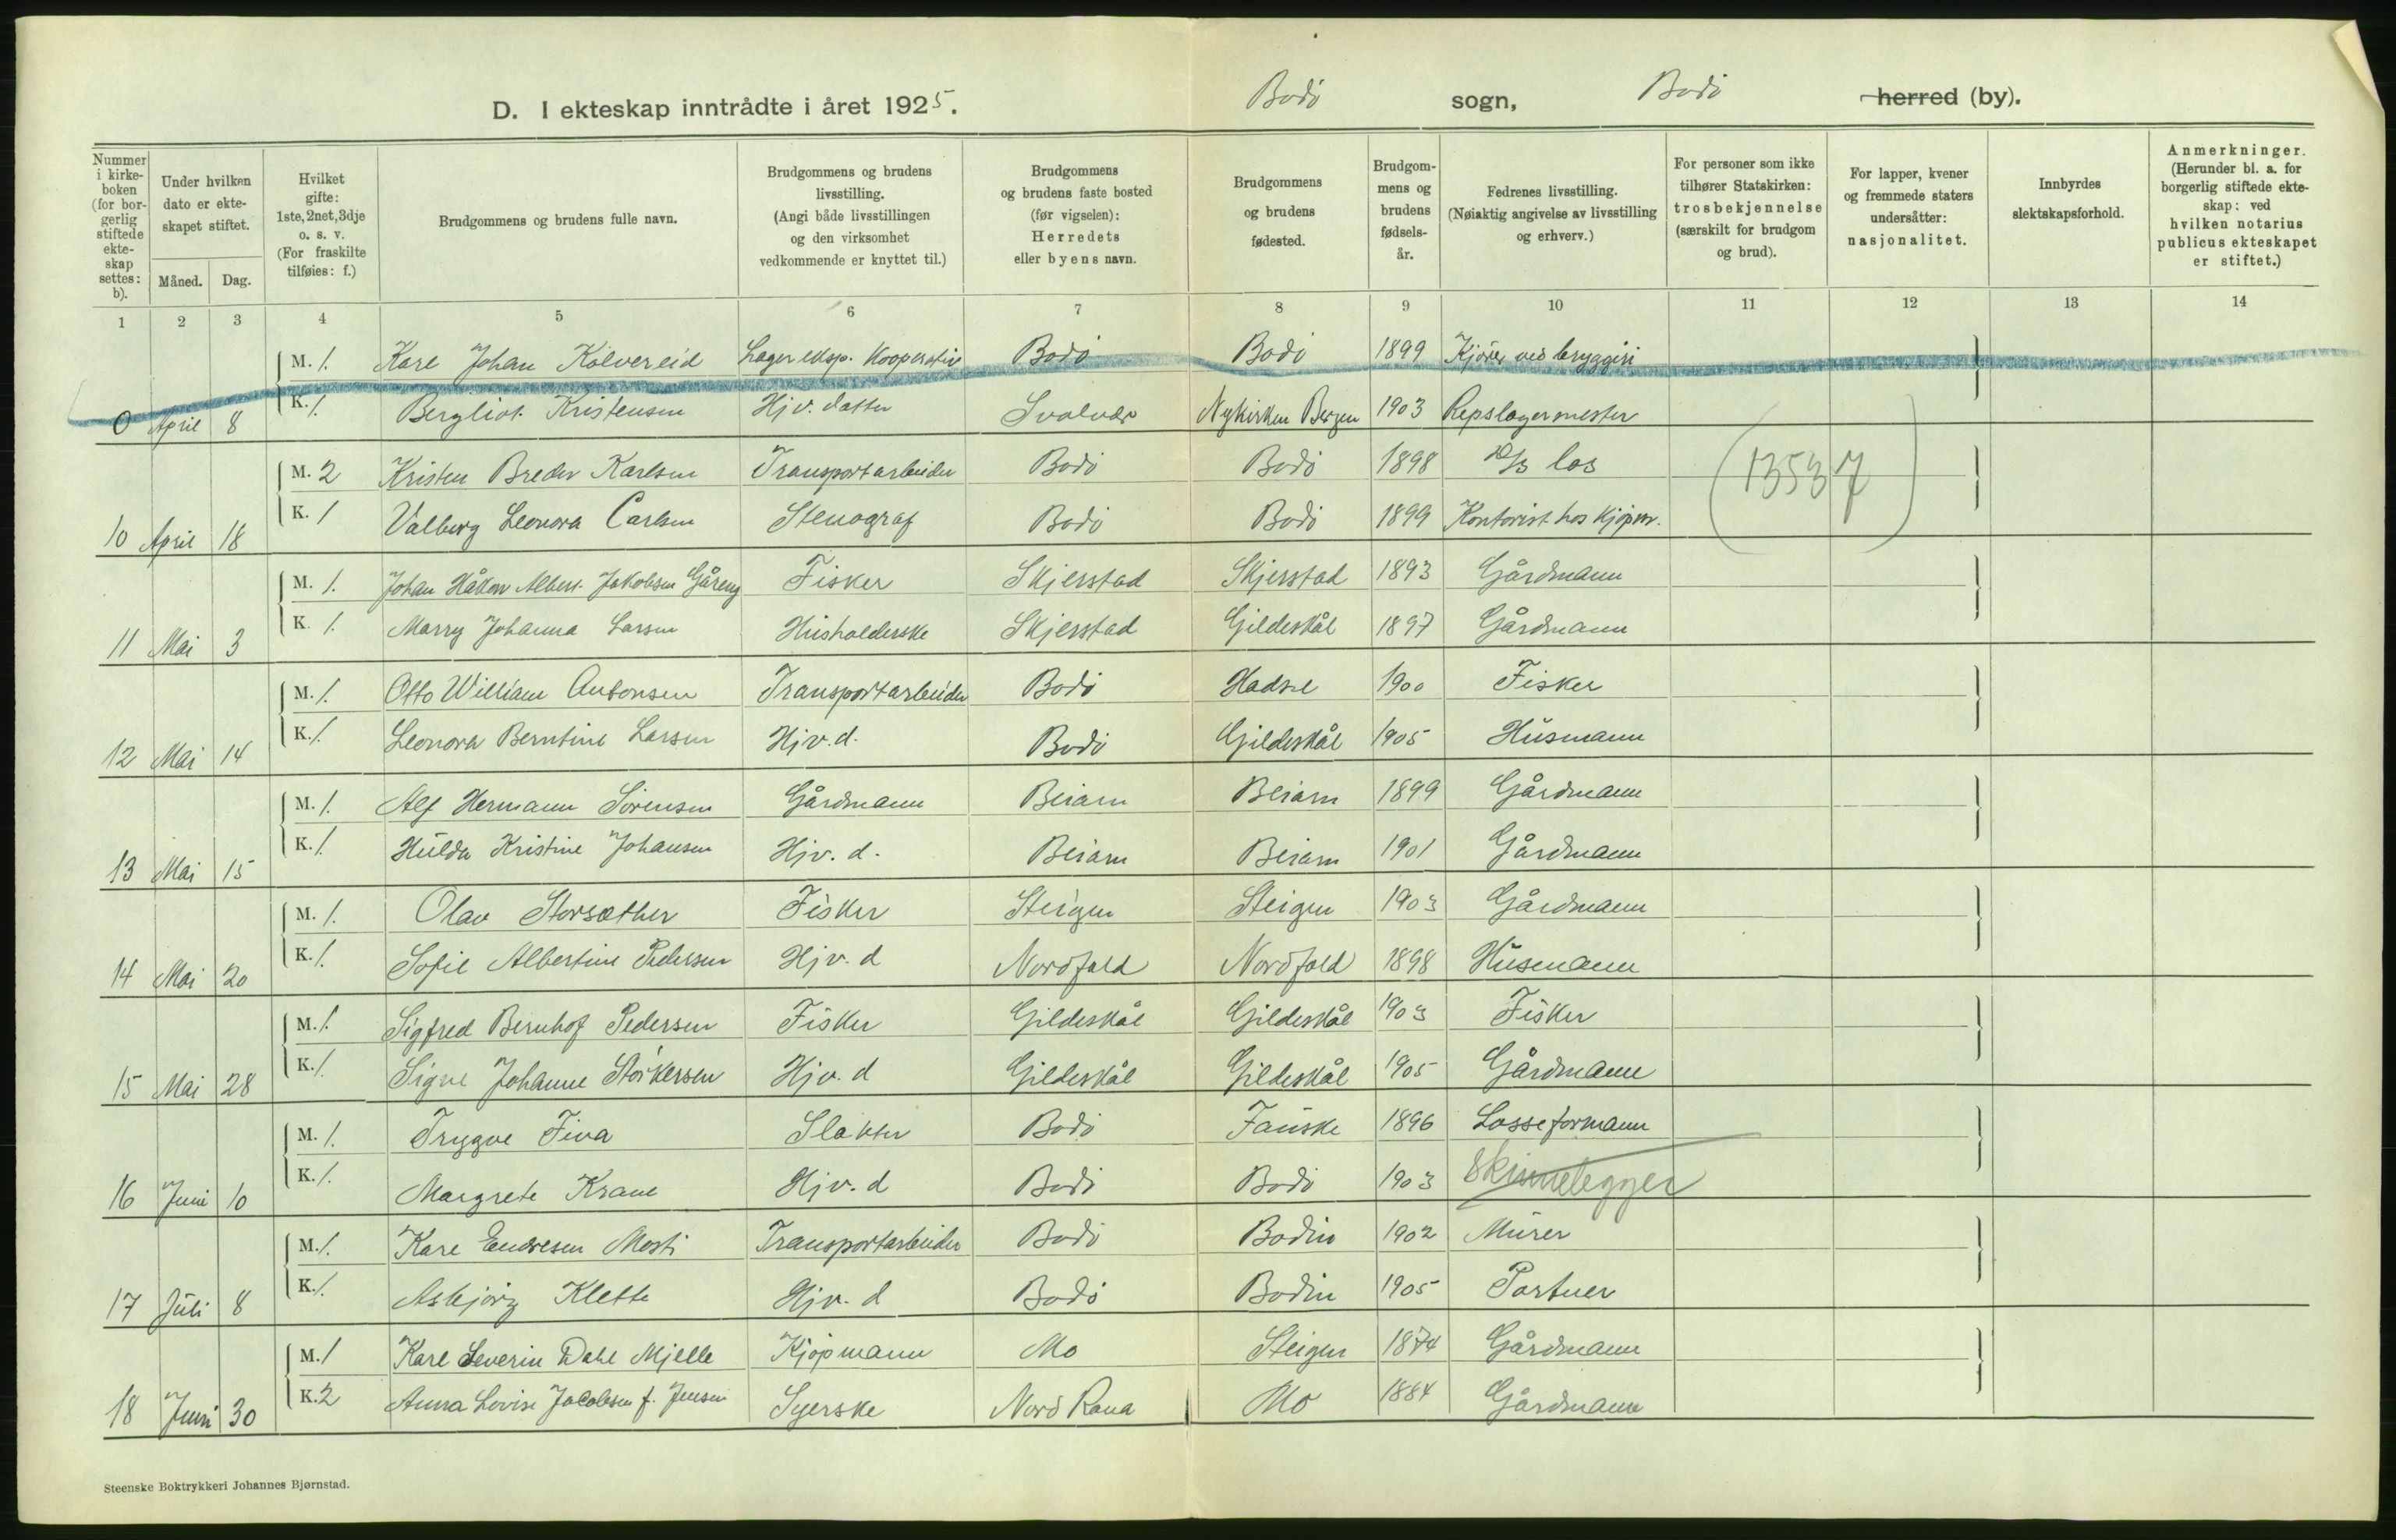 D. I ekteskap inntrådte i året 1925. Bodø sogn, Bodø herred (by).
Nummer i kirkeboken (for borgerlig stiftede ekteskap settes: b).
Under hvilken dato er ekteskapet stiftet.
Måned. Dag.
Hvilket gifte: 1ste, 2net, 3dje o. s. v. (For fraskilte tilføies: f.)
Brudgommens og brudens fulle navn.
Brudgommens og brudens livsstilling. (Angi både livsstillingen og den virksomhet vedkommende er knyttet til.)
Brudgommens og brudens faste bosted (før vigselen): Herredets eller byens navn.
Brudgommens og brudens fødested.
Brudgommens og brudens fødselsår.
Fedrenes livsstilling. (Nøiaktig angivelse av livsstilling og erhverv.)
For personer som ikke tilhører Statskirken: trosbekjennelse (særskilt for brudgom og brud).
For lapper, kvener og fremmede staters undersåtter: nasjonalitet.
Innbyrdes slektskapsforhold.
Anmerkninger. (Herunder bl. a. for borgerlig stiftede ekteskap: ved hvilken notarius publicus ekteskapet er stiftet.)
1 2 3 4 5 6 7 8 9 10 11 12 13 14
M. 1. Kare Johan Kolvereid Lager eksp. Kooperativ Bodø Bodø 1899 Kjører ved bryggeri
0 April 8 K. 1. Bergliot Kristensen Hjv. datter Svolvær Nykirken Bergen 1903 Repslagermester
M. 2 Kristen Breder Karlsen Transportarbeider Bodø Bodø 1898 D/S los
(13537)
10 April 18 K. 1 Valborg Leonora Carlsen Stenograf Bodø Bodø 1899 Kontorist hos kjøpm.
M. 1. Johan Håkon Albert Jakobsen Gåreng Fisker Skjerstad Skjerstad 1893 Gårdmann
11 Mai 3 K. 1. Marry Johanna Larsen Husholderske Skjerstad Gildeskål 1897 Gårdmann
M. 1. Otto William Antonsen Transportarbeider Bodø Hadsel 1900 Fisker
12 Mai 14 K. 1. Leonora Berntine Larsen Hjv. d. Bodø Gildeskål 1905 Husmann
M. 1. Alf Hermann Sørensen Gårdmann Beiarn Beiarn 1899 Gårdmann
13 Mai 15 K. 1. Hulda Kristine Johansen Hjv. d. Beiarn Beiarn 1901 Gårdmann
M. 1. Olav Storsæther Fisker Steigen Steigen 1903 Gårdmann
14 Mai 20 K. 1. Sofie Albertine Pedersen Hjv. d Nordfold Nordfold 1898 Husmann
M. 1. Sigfred Bernhof Pedersen Fisker Gildeskål Gildeskål 1903 Fisker
15 Mai 28 K. 1. Signe Johanne Størkersen Hjv. d Gildeskål Gildeskål 1905 Gårdmann
M. 1. Trygve Fiva Slakter Bodø Fauske 1896 Losseformann
16 Juni 10 K. 1. Margrete Krane Hjv. d Bodø Bodø 1903 Skinnelegger
M. 1. Kare Endresen Mosti Transportarbeider Bodø Bodin 1902 Murer
17 Juli 8 K. 1. Asbjørg Klette Hjv. d Bodø Bodin 1905 Portner
M. 1 Kare Severin Dahl Mjelle Kjøpmann Mo Steigen 1874 Gårdmann
18 Juni 30 K. 2 Anna Lovise Jacobsen f. Jensen Syerske Nord Rana Mo 1884 Gårdmann
Steenske Boktrykkeri Johannes Bjørnstad.